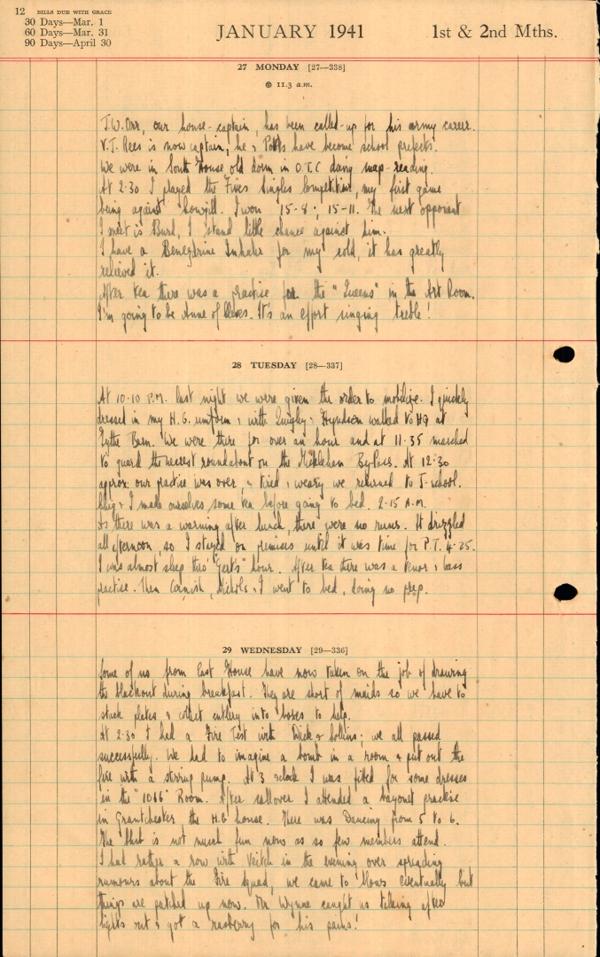 12 BILLS DUE WITH GRACE
30 Days—Mar. 1
60 Days—Mar. 31
90 Days—April 30
JANUARY 1941
1st & 2nd Mths.
27 MONDAY [27—338]
11.3 a.m.
J.W. Orr, our house-captain, has been called-up for his army career.
V.T. Rees is now captain, he & Potts have become school prefects.
We were in South House old dorm in O.T.C doing map-reading.
At 2.30 I played the Fives Singles Competition, my first game
being against Cowgill. I won 15-8; 15-11. The next opponent
I meet is Burd, I stand little chance against him.
I have a Benezdrine Inhaler for my cold, it has greatly
relieved it.
After tea there was a practice for the "Queens" in the Art Room.
I'm going to be Anne of Cleves. It's an effort singing treble!
28 TUESDAY [28—337]
At 10.10 P.M. last night we were given the order to mobilize. I quickly
dressed in my H.G. uniform & with Quigley & Hyndson walked to HQ at
Tythe Barn. We were there for over an hour and at 11.35 marched
to guard the nearest roundabout on the Mickleham ByPass. At 12.30
approx our practice was over, & tired & weary we returned to J-school.
& I made ourselves some tea before going to bed. 2-15 A.M.
As there was a warning after lunch, there were no runs. It drizzled
all afternoon so I stayed on premises until it was time for P.T. 4-25.
I was almost sleep thro' "Gerts" hour. After tea there was a tenor & bass
practise. Then Cornish, Nichols & I went to bed, doing no prep.
29 WEDNESDAY [29—336]
Some of us from East House have now taken on the job of drawing
the blackout during breakfast. They are short of maids so we have to
stack plates & collect cutlery into boxes to help.
At 2.30 I had a Fire Test with Dick & Collins; we all passed
successfully. We had to imagine a bomb in a room & put out the
fire with a stirrup pump. At 3 oclock I was fitted for some dresses
in the "1066" Room. After callover I attended a bayonet practise
in Grantchester the H.G house. There was Dancing from 5 to 6.
The is not much fun now as so few members attend.
I had rather a row with Veitch in the evening over spreading
rumours about the Fire Squad, we came to blows eventually but
things are patched up now. Mr Wynne caught us talking after
lights out & got a rasberry for his pains!